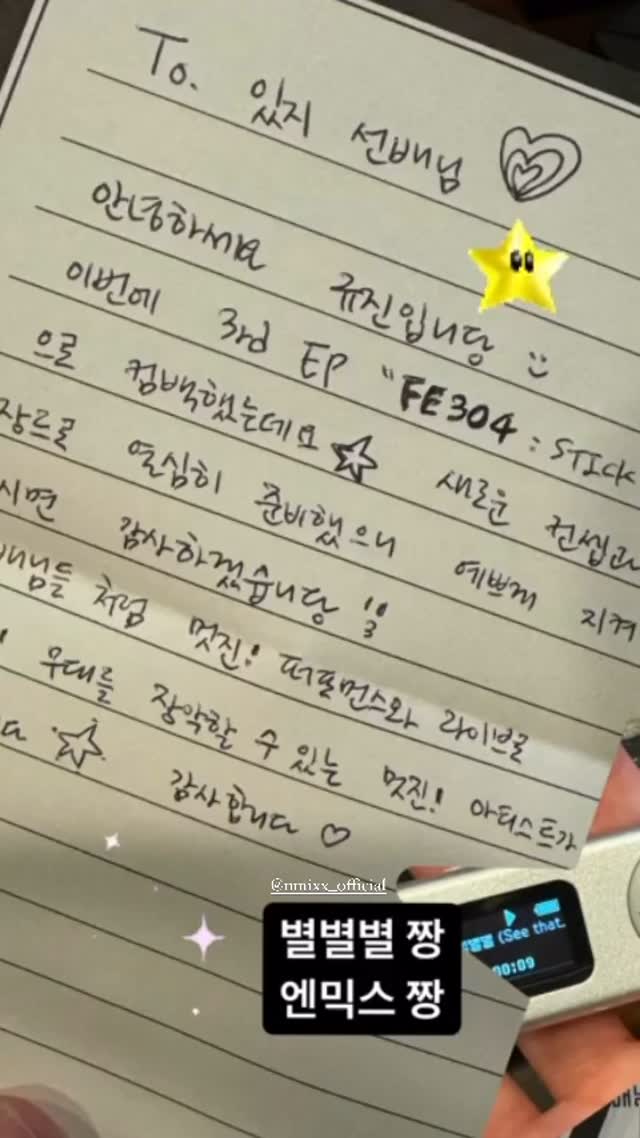 To. 있지 선배님
안녕하세요 규진입니당 :)
이번에 3rd EP "FE3O4 : STICK
으로 컴백했는데요 새로운 컨셉과
장르로 열심히 준비했으니 예쁘게 지켜
시면 감사하겠습니당 !!
배님들 처럼 멋진! 퍼포먼스와 라이브로
무대를 장악할 수 있는 멋진! 아티스트가
감사합니다 ♡
@nmixx_official
별별별 짱
엔믹스 짱
별별 (See that..
00:09